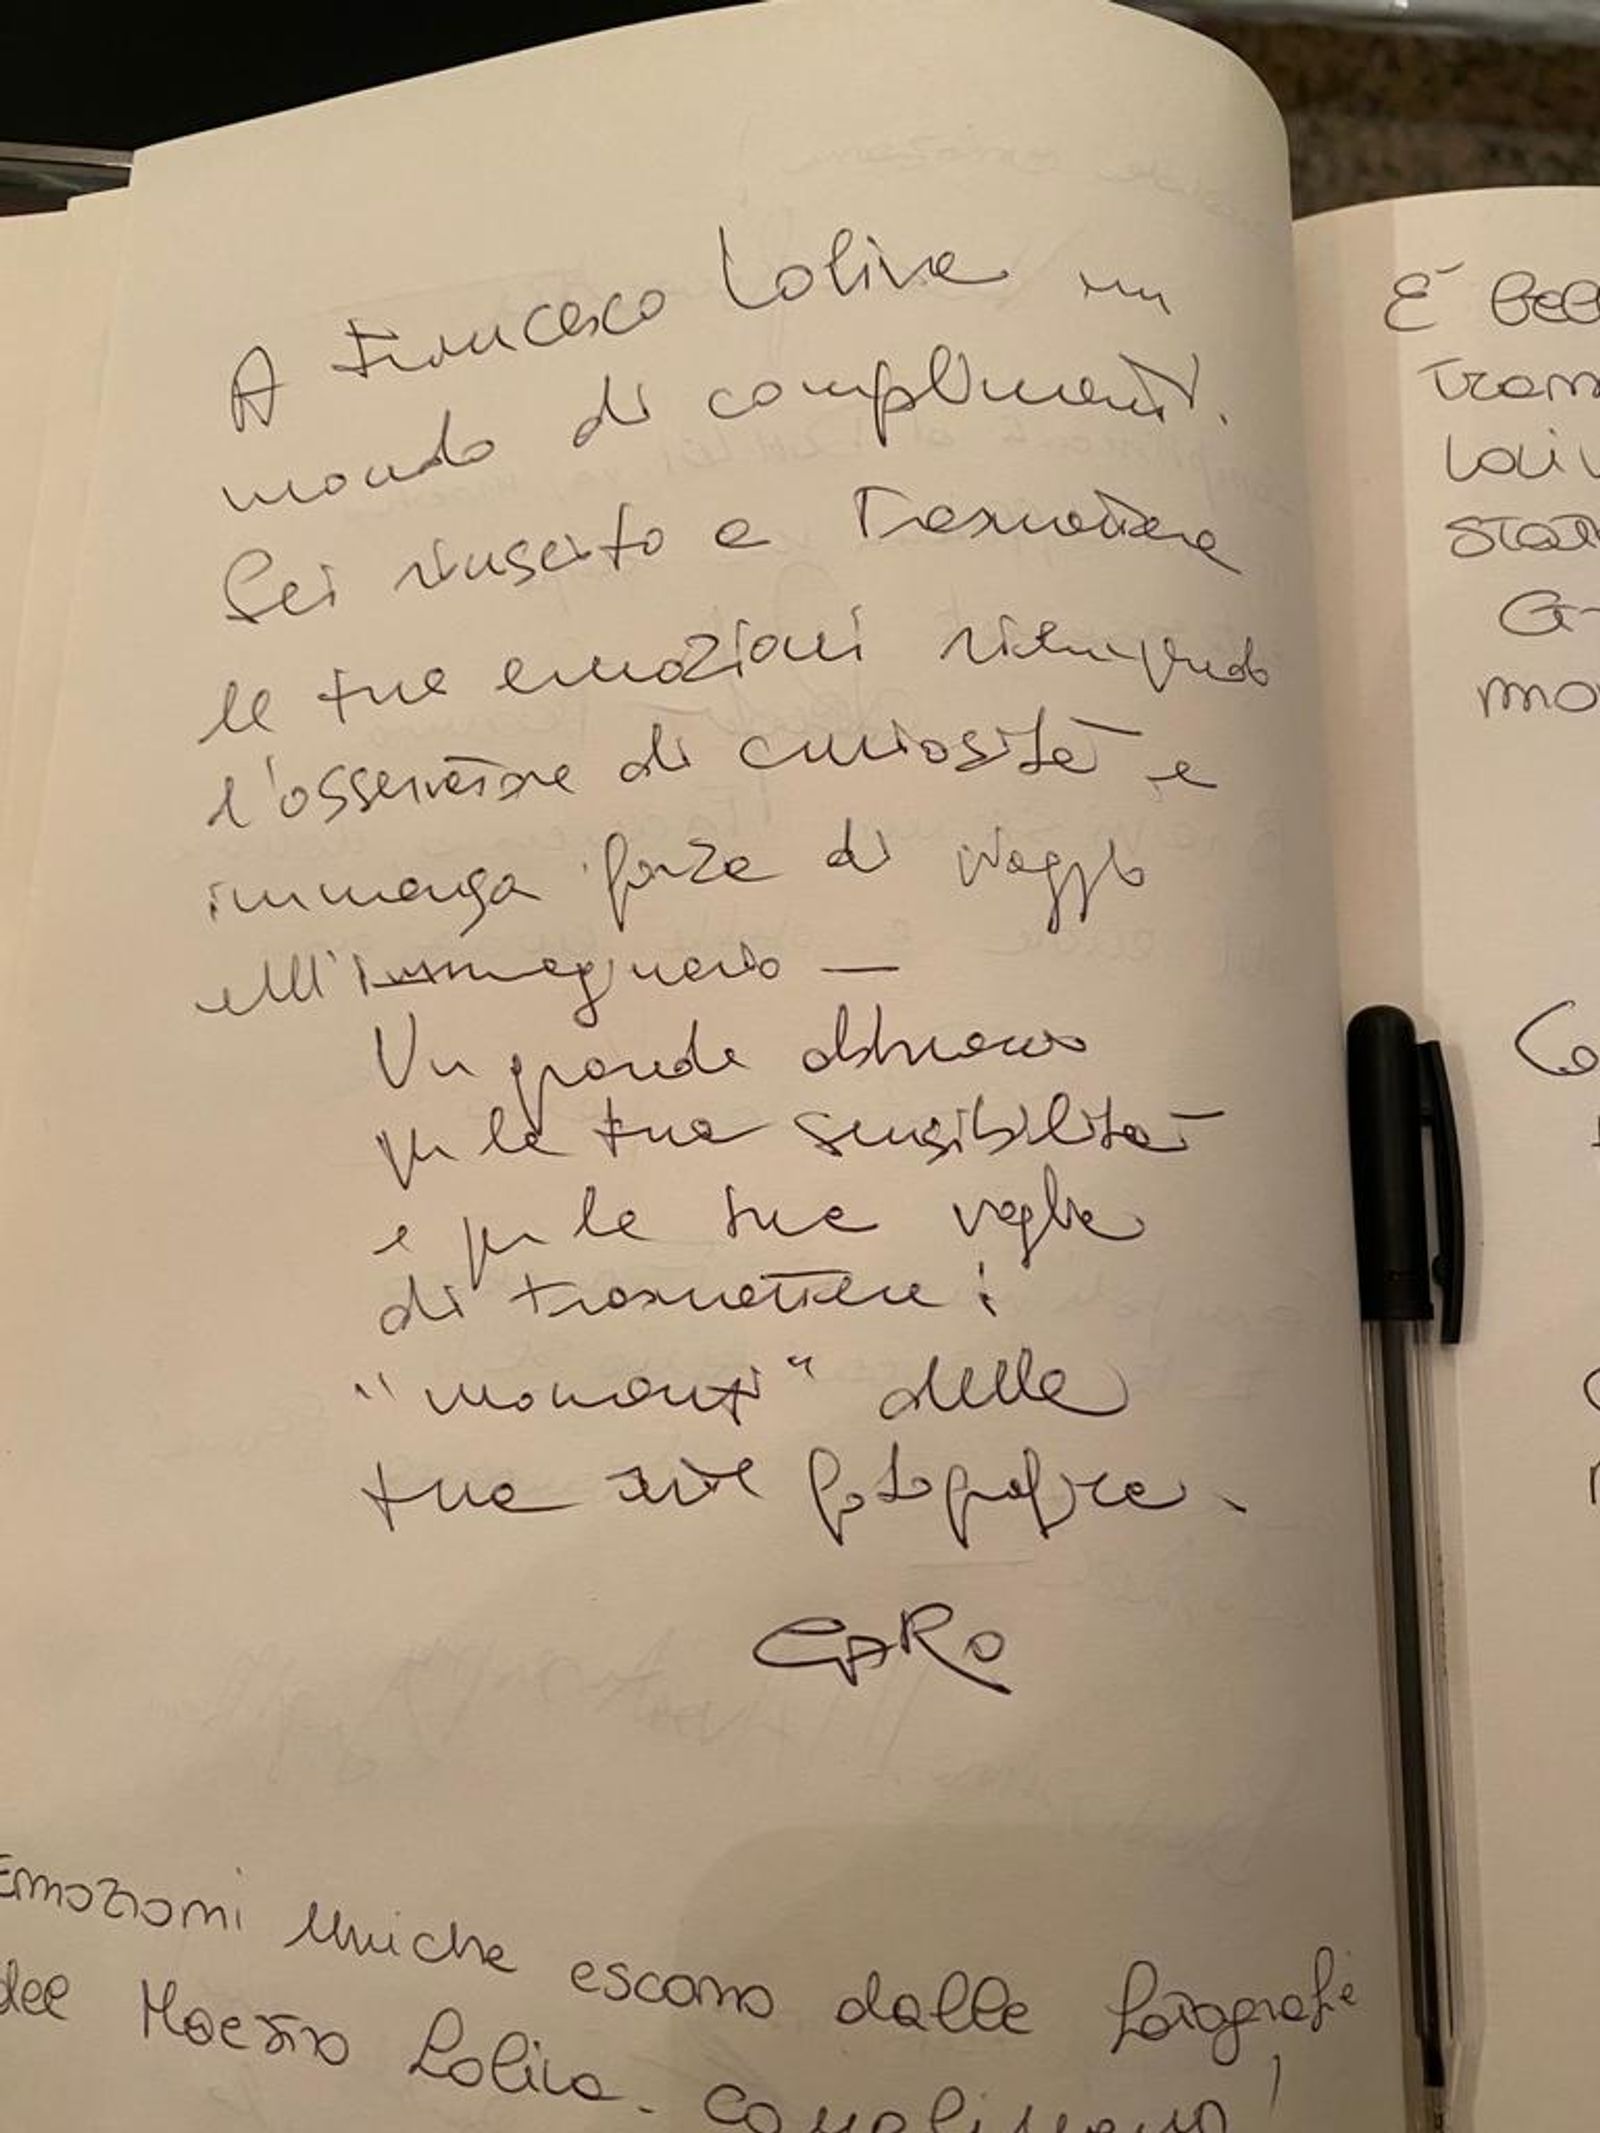 A Francesco Loliva un
mondo di complimenti.
Sei riuscito a Trasmettere
le tue emozioni riempiendo
l'osservatore di curiosità e
immensa forza di viaggio
all'immaginario —
Un grande abbraccio
per la tua sensibilità
e per la tua voglia
di trasmettere i
"momenti" della
tua arte fotografica.
CARO
Emozioni Uniche escono dalle fotografie
del Maestro Loliva. Complimenti!
È bell
Tram
Loliv
Star
G
mo
Co